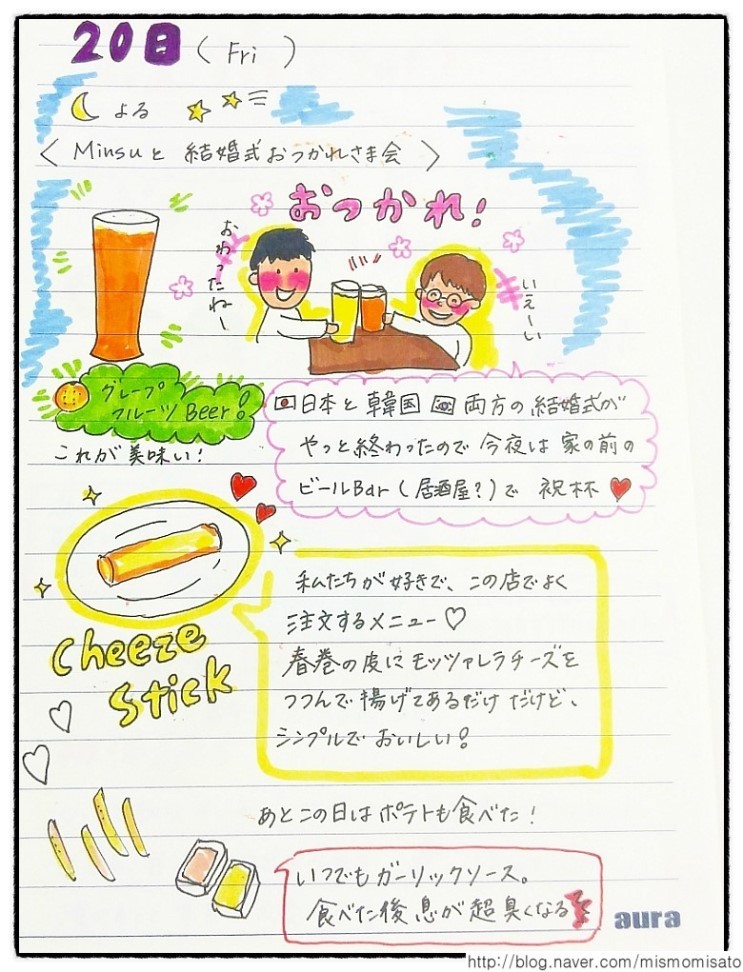 20日 ( Fri )
よる
< Minsuと 結婚式おつかれさま会 >
おつかれ!
おわったねー
いぇーい
グレープ
フルーツ Beer!
これが美味い!
日本と韓国 両方の結婚式が
やっと終わったので 今夜は家の前の
ビールBar (居酒屋?)で 祝杯
私たちが好きで、この店でよく
注文するメニュー♡
春巻の皮にモッツァレラチーズを
つつんで揚げてあるだけ だけど、
シンプルで おいしい!
Cheeze
Stick
あとこの日はポテトも食べた!
いつでもガーリックソース。
食べた後息が超臭くなる
aura
http://blog.naver.com/mismomisato